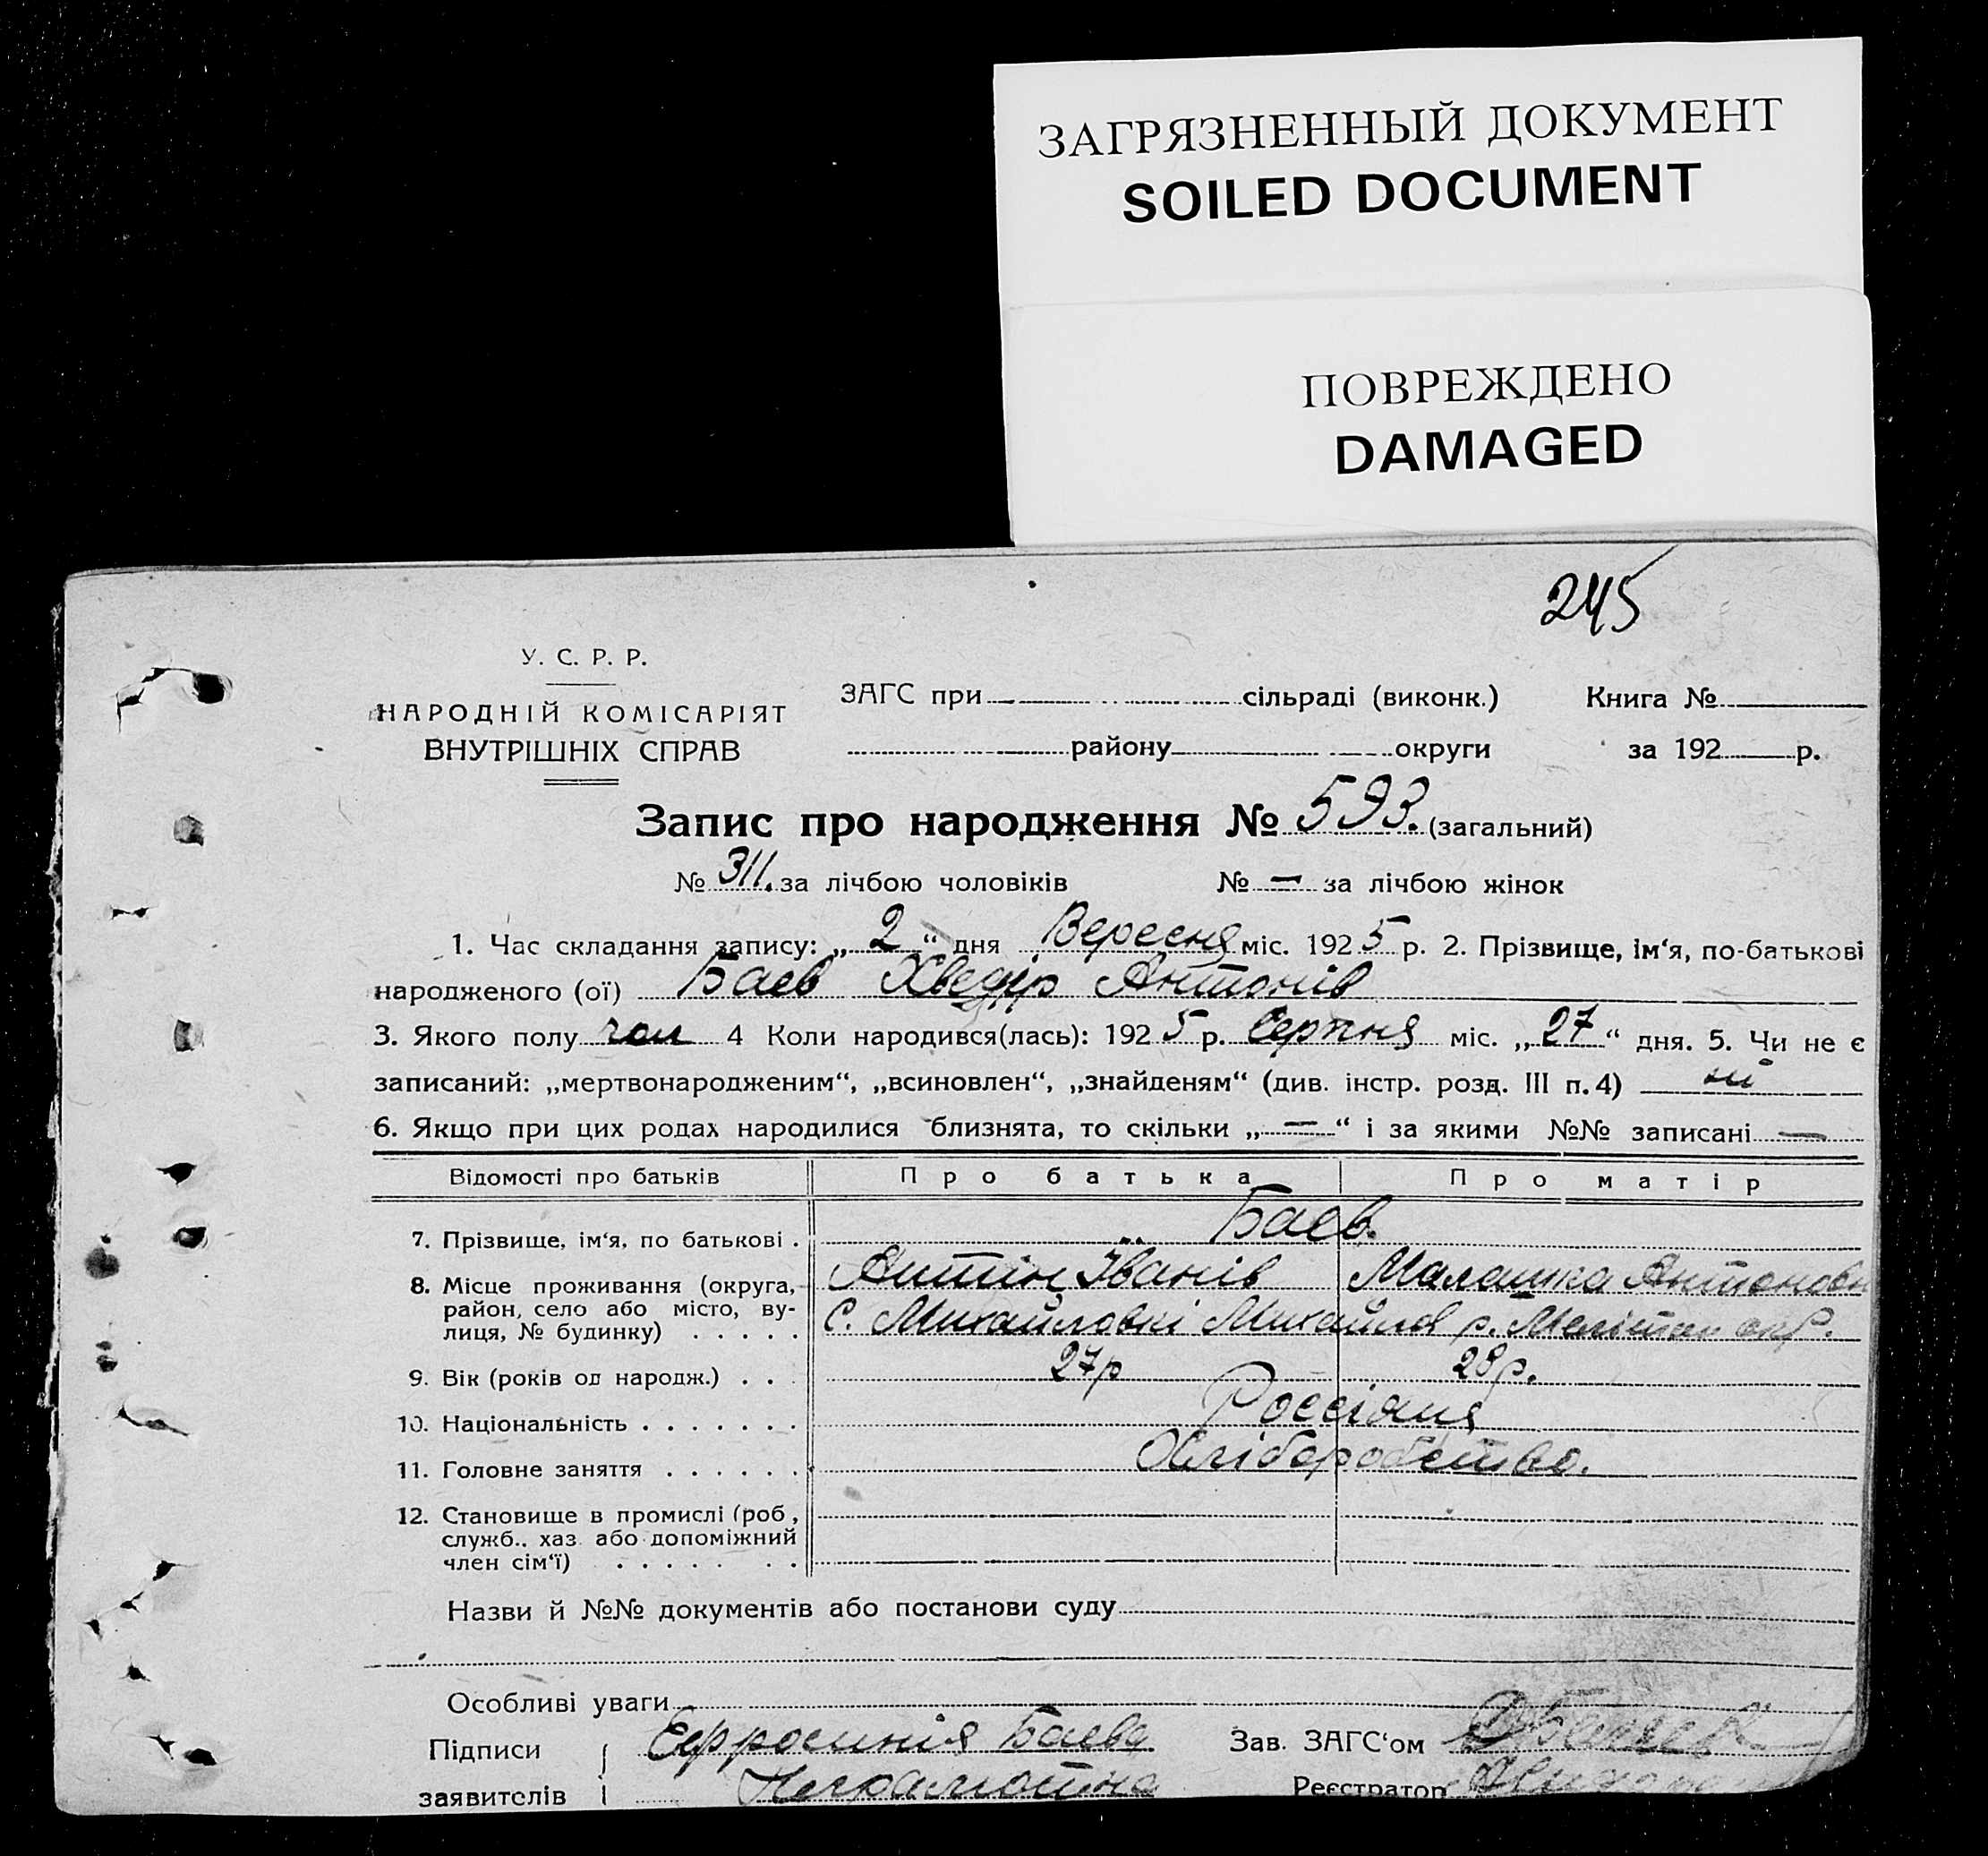 ЗАГРЯЗНЕННЫЙ ДОКУМЕНТ
SOILED DOCUMENT
ПОВРЕЖДЕНО
DAMAGED
245
У. С. Р. Р.
НАРОДНІЙ КОМІСАРІЯТ
ВНУТРІШНІХ СПРАВ
ЗАГС при сільраді (виконк.) Книга №
району округи за 192 р.
Запис про народження № 593. (загальний)
№ 311. за лічбою чоловіків № — за лічбою жінок
1. Час складання запису: „ 2 “ дня Вересня міс. 1925 р. 2. Прізвище, ім‘я, по-батькові
народженого (ої) Баєв Хведір Антонів
3. Якого полу чол 4 Коли народився(лась): 1925 р. Серпня міс. „ 27 “ дня. 5. Чи не є
записаний: „мертвонародженим“, „всиновлен“, „знайденям“ (див. інстр. розд. III п. 4) ні
6. Якщо при цих родах народилися близнята, то скільки „ — “ і за якими №№ записані —
Відомості про батьків Про батька Про матір
7. Прізвище, ім‘я, по батькові . Баєв.
Антін Іванів Малашка Антоновн
8. Місце проживання (округа, район, село або місто, ву-лиця, № будинку) . . . . . С. Михайловкі Михайлов р. Меліто окр.
9. Вік (років од народж.) . . . 27р 28р.
10. Національність . . . . . . . Россіяня
11. Головне заняття . . . . . . Хліборобство.
12. Становище в промислі (роб ,
служб.. хаз. або допоміжний
член сім‘ї) . . . . . . .
Назви й №№ документів або постанови суду
Особливі уваги
Підписи Єфросинія Баєва Зав. ЗАГС‘ом
заявителів Неграмотна Реєстратор